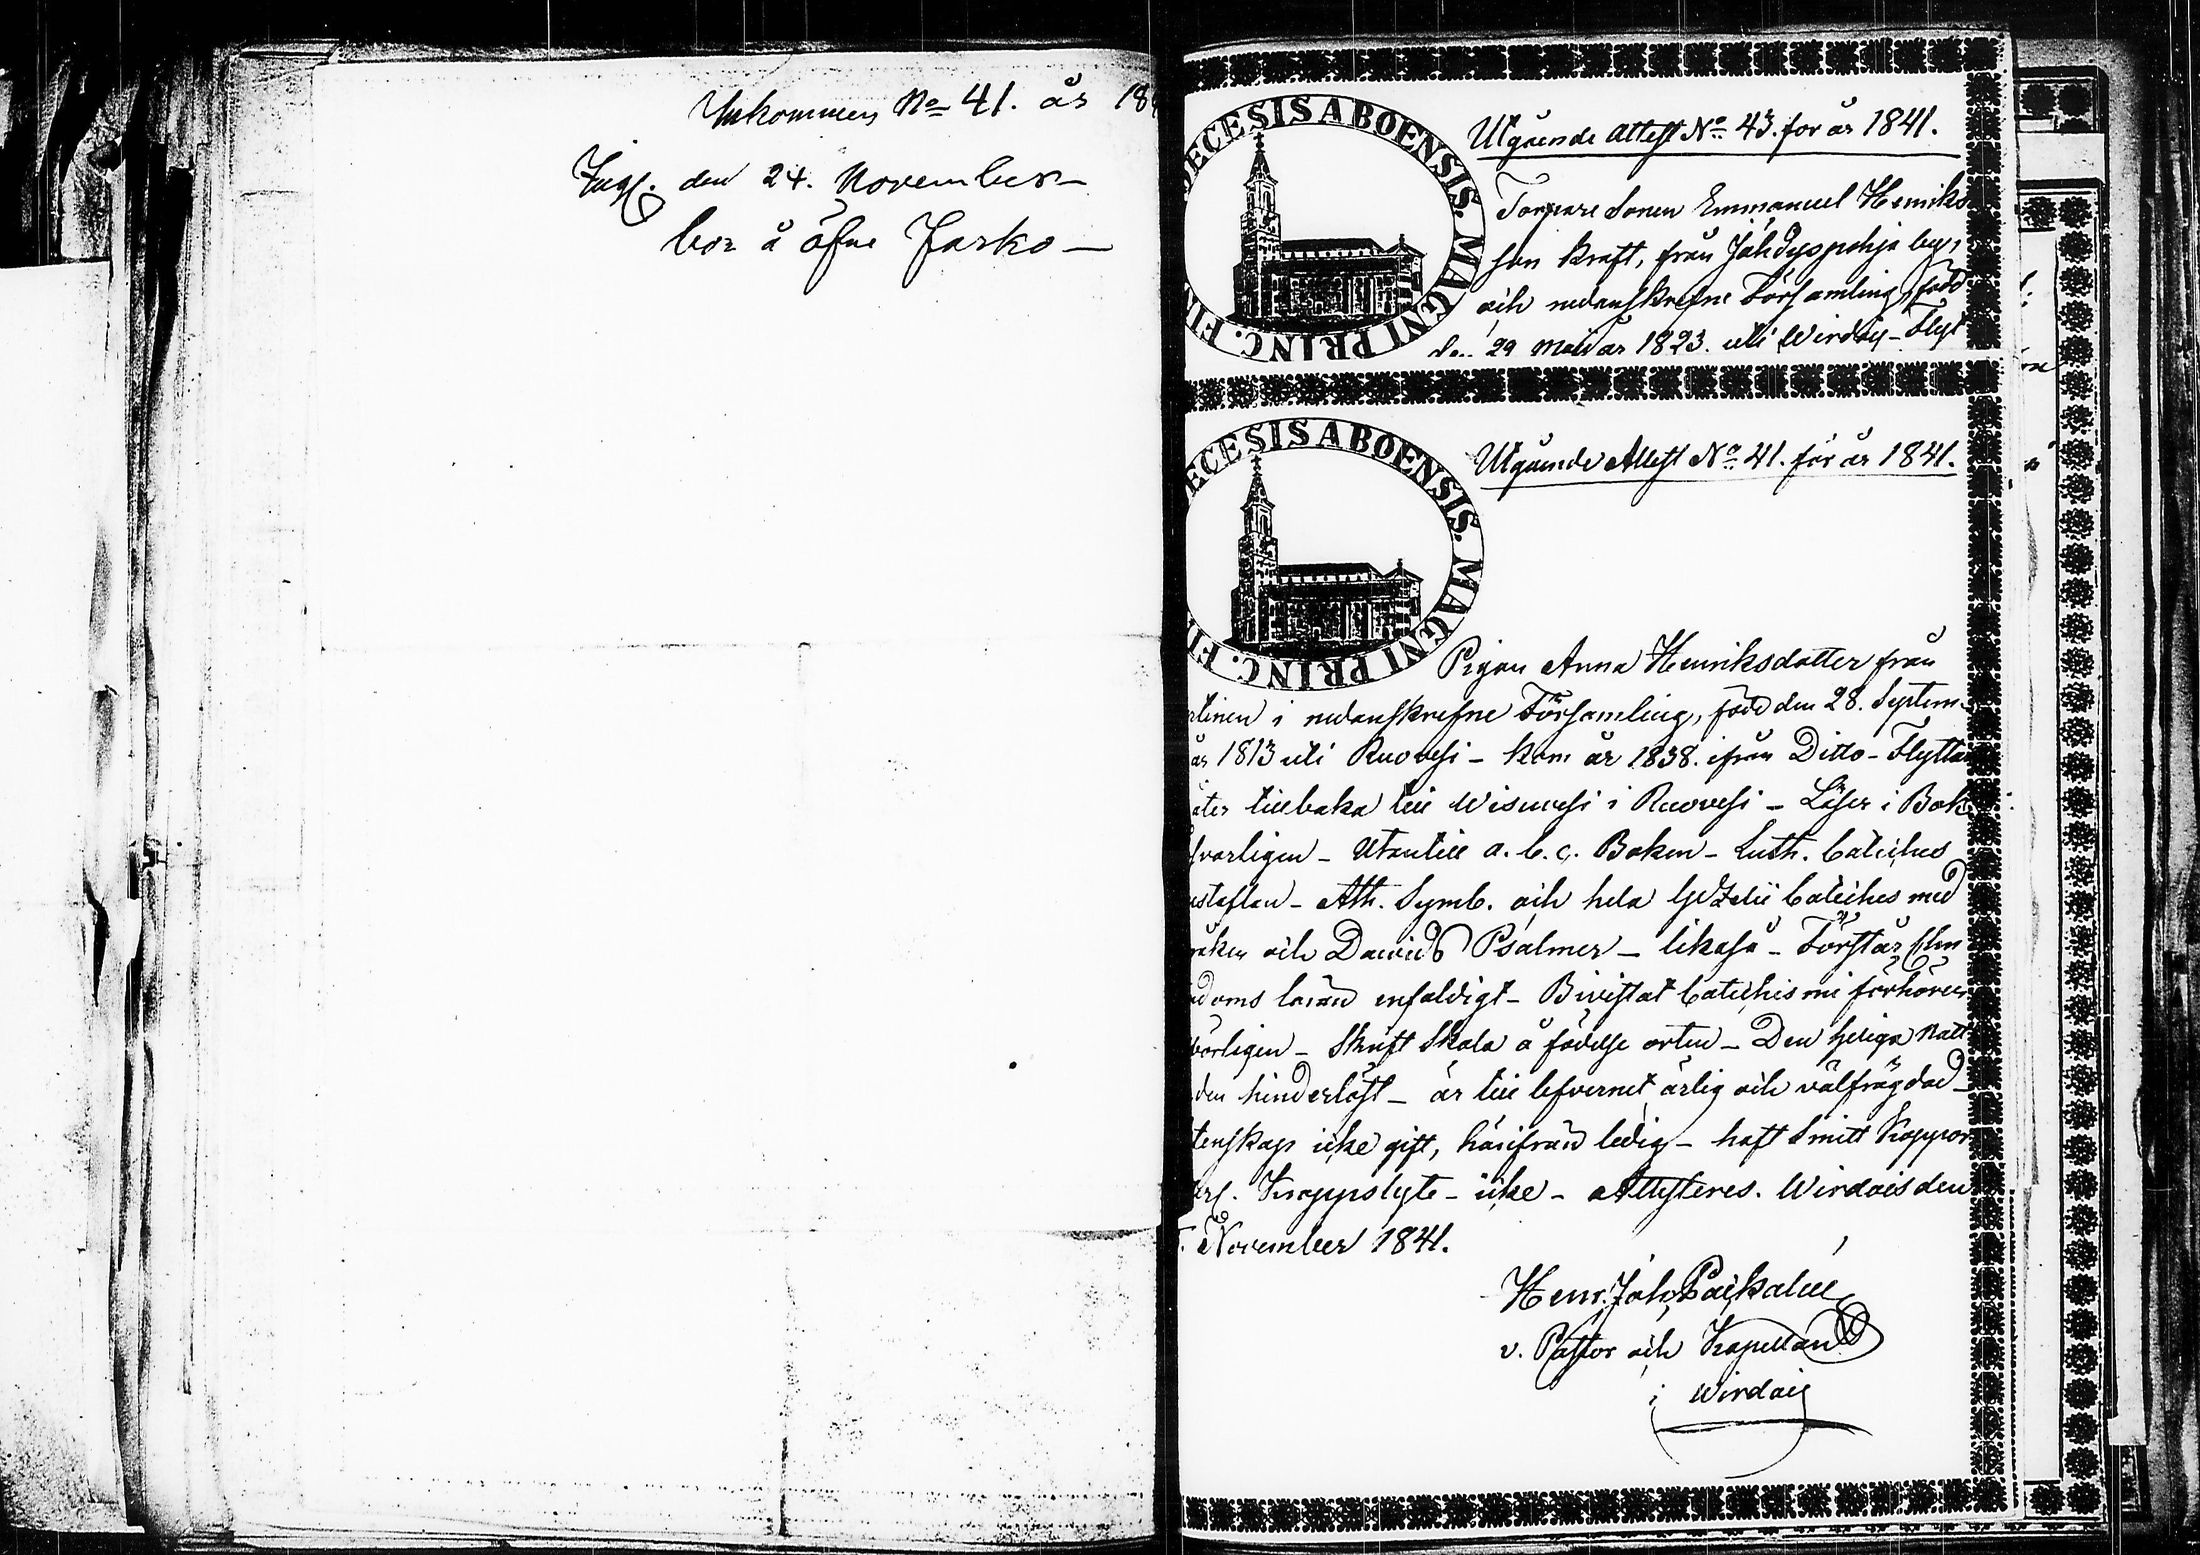 Inkommen No 41. år 18
Ingf. den 24. November
bor å öfre Jasko
DECESIS ABOENSIS. MAGNI PRINC. FI
Utgående Attest No. 43. for år 1841.
Torpare Sonen Emmanuel Henriks
son Kraft, från Jähdyspohja by,
och nedanskrefne Församling, född
den 29 Maii år 1823. uti Wirdois - Flyt
ECESIS ABOENSIS. MAGNI PRINC. FI
Utgående Attest No. 41. för år 1841.
Pigan Anna Henriksdotter från
rtinen i nedanskrefne Församling, född den 28. Septem
år 1813 uti Ruovesi - kom år 1838. ifrån Ditto - Flyttar
åter tillbaka till Wisuvesi i Ruovesi - Läser i Bok
svarligen - Utantill a. b. c. Boken - Luth. Catechес
ustaflan - Ath. Symb. och hela Gezelii Cateches med
råken och Davids Psalmer - likaså - Förstår
ndoms läran enfaldigt - Bivistat Catechismi förhören
börligen - Skrift Skola å födelse orten - Den heliga Natt
den hinderlöst - är till lefvernet ärlig och välfrägdad -
tenskap icke gift, härifrån ledig - haft Smitt Koppor
Kroppslyte - icke - Attesteres. Wirdois den
November 1841.
Henr. Joh. Paikalin
v. Pastor och Kapellan
i Wirdois